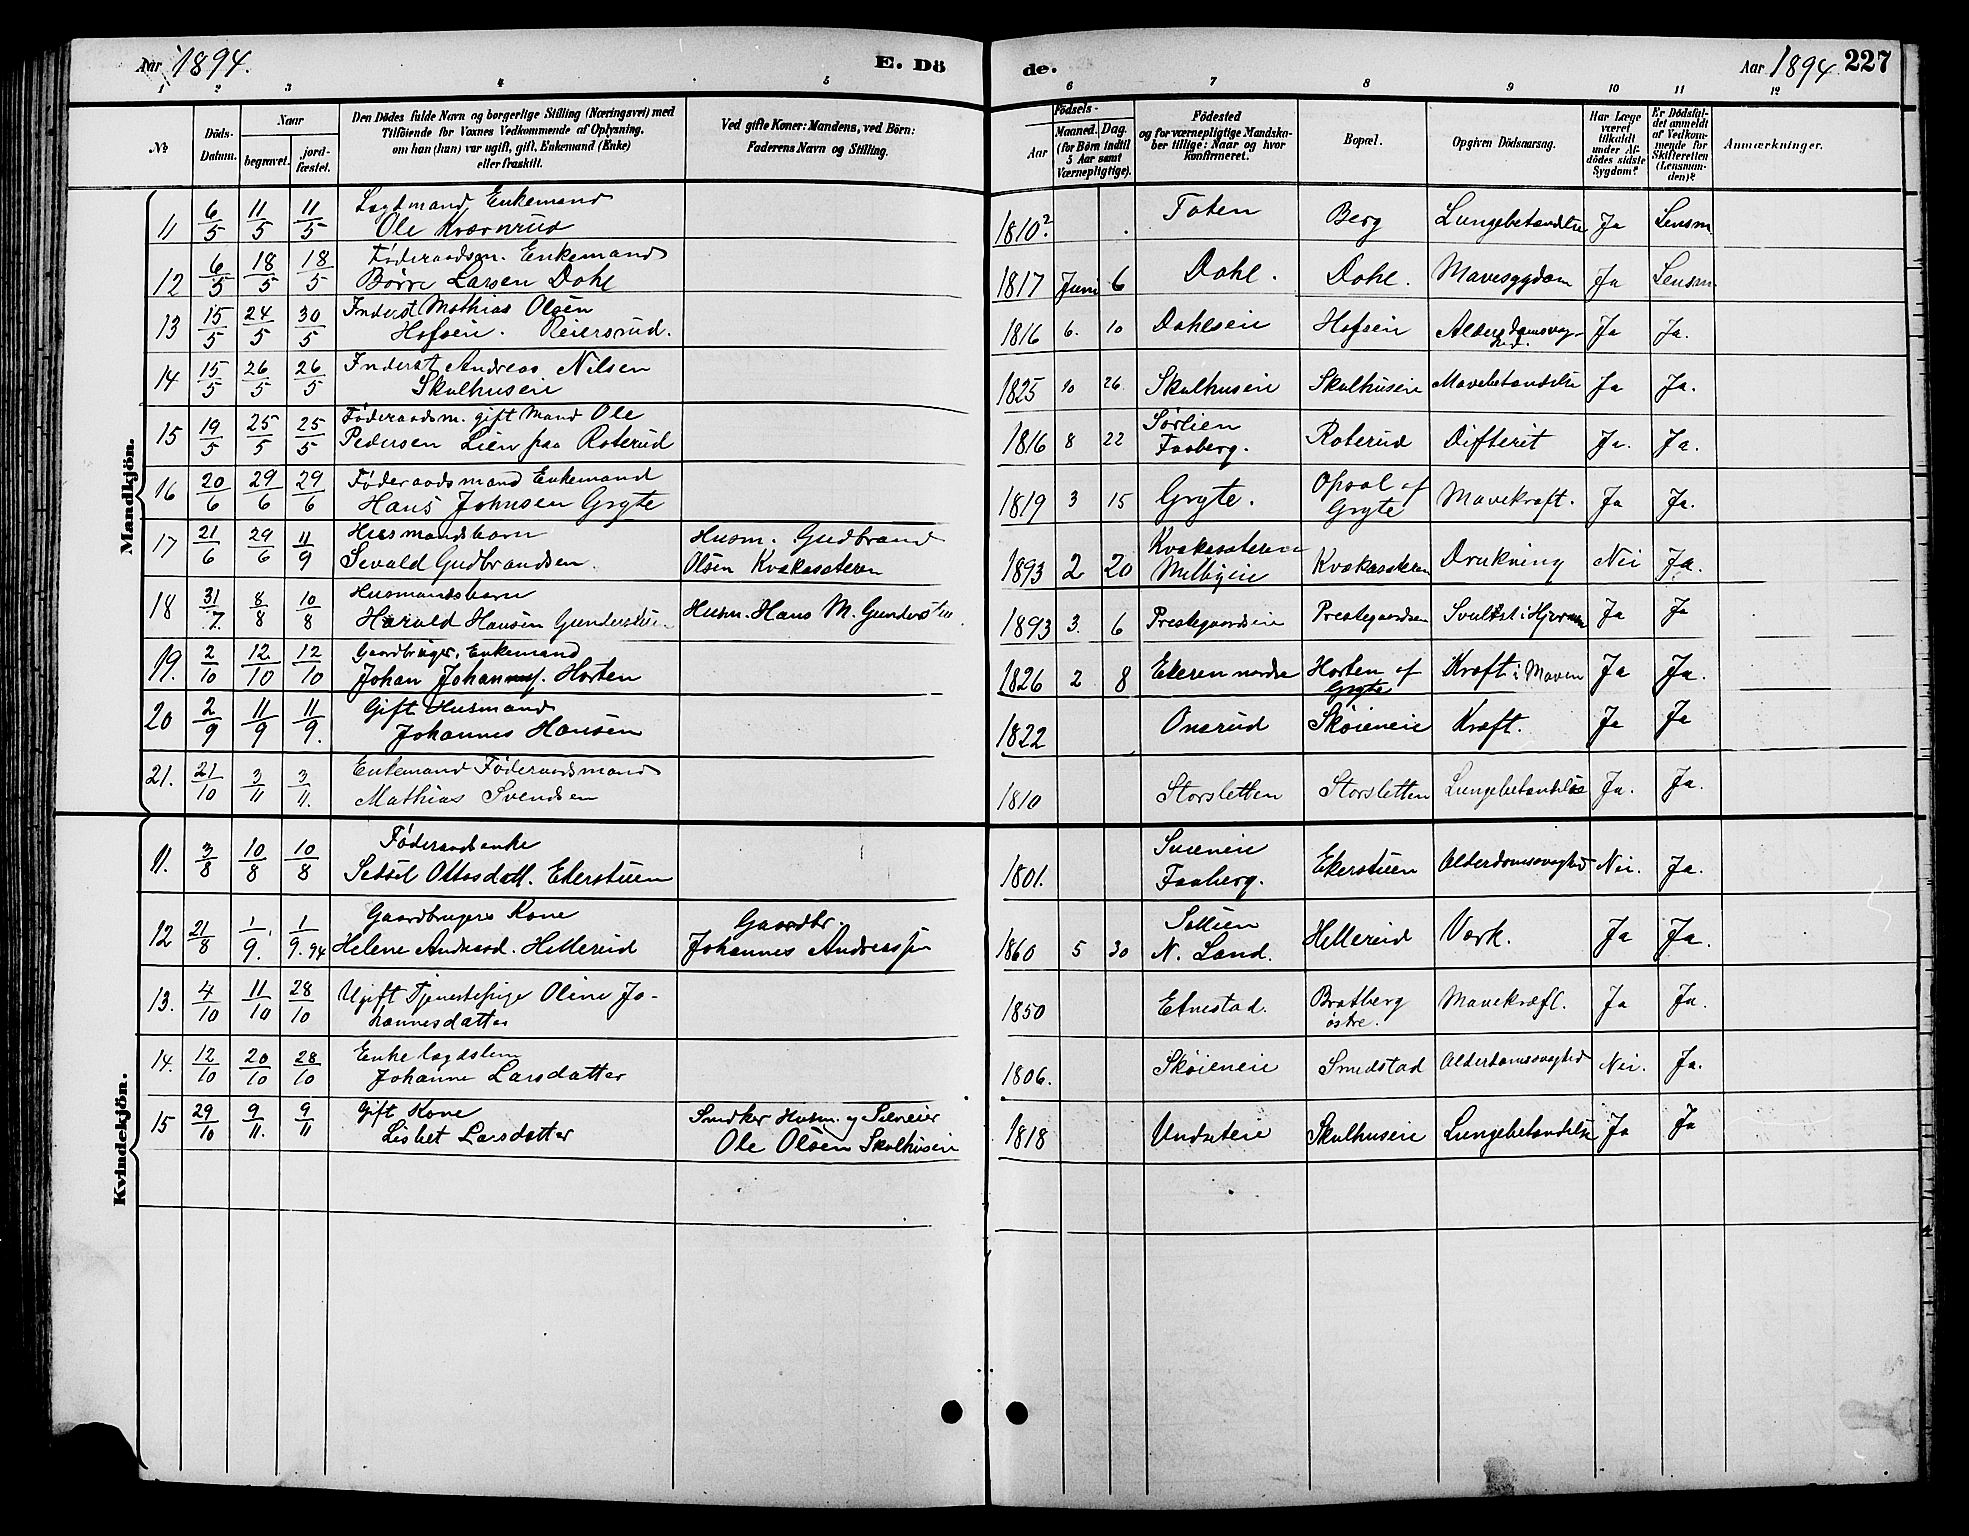 Aar 1894.
E. Dö
de.
Aar 1894.
227
1 2 3 4 5 6 7 8 9 10 11 12
No
Döds-
Datum.
Naar
begravet.
jord-
fæstet.
Den Dödes fulde Navn og borgerlige Stilling (Næringsvei) med
Tilföiende for Voxnes Vedkommende af Oplysning,
om han (hun) var ugift, gift, Enkemand (Enke)
eller fraskilt.
Ved gifte Koner: Mandens, ved Börn:
Faderens Navn og Stilling.
Födsels-
Aar
Maaned.
Dag.
(for Börn indtil
5 Aar samt
Værnepligtige).
Födested
og for værnepligtige Mandska-
ber tillige: Naar og hvor
konfirmeret.
Bopæl.
Opgiven Dödsaarsag.
Har Læge
været
tilkaldt
under Af-
dödes sidste
Sygdom?
Er Dödsfal-
det anmeldt
af Vedkom-
mende for
Skifteretten
(Lensman-
den)?
Anmærkninger.
Mandkjön.
11 6/5 11/5 11/5 Lægdmand, Enkemand
Ole Kværnrud
1810? Toten Berg Lungebetændelse Ja Lensm
12 6/5 18/5 18/5 Føderaadsm. Enkemand
Børre Larsen Dahl
1817 Juni 6 Dahl. Dahl. Mavesygdom Ja Lensm
13 15/5 24/5 30/5 Inderst Mathias Olsen
Hofseie. Reiersrud.
1816 6. 10 Dahlseie Hofseie Alderdomssvag-
hed. Ja Ja.
14 15/5 26/5 26/5 Inderst Andreas Nilsen
Skulhuseie
1825 10 26 Skulhuseie Skulhuseie Mavebetændelse Ja Ja.
15 19/5 25/5 25/5 Føderaadsm. gift Mand Ole
Pedersen Lien paa Roterud
1816 8 22 Sørlien
Faaberg. Roterud Difterit Ja. Ja.
16 20/6 29/6 29/6 Føderaadsmand Enkemand
Hans Johnsen Grythe
1819 3 15 Gryte. Opsal af
Gryte Mavekræft. Ja Ja.
17 21/6 29/6 11/9 Husmandsbarn
Sevald Gudbrandsen.
Husm. Gudbrand
Olsen Kvækasæteren
1893 2 20 Kvækasæteren
Melbyeie Kvækasæteren Drukning Nei Ja.
18 31/7 8/8 10/8 Husmandsbarn
Harald Hansen Gunderstuen
Husm. Hans M. Gunderstuen.
1893 3. 6 Prestegaardseie Prestegaardseie Svulst i Hjernen Ja Ja
19. 2/10 12/10 12/10 Gaardbruger, Enkemand
Johan Johannesf. Horten
1826 2 8 Ekeren nordre Horten af
Gryte Kræft i Maven Ja Ja.
20 2/9 11/9 11/9. Gift Husmand
Johannes Hansen
1822 Onsrud Skøieneie Kræft. Ja Ja
21. 21/10 3/11 3/11. Enkemand Føderaadsmand
Mathias Svendsen
1810 Storsletten Storsletten Lungebetændelse Ja. Ja.
Kvindekjön.
11. 3/8 10/8 10/8 Føderaadsenke
Sedsel Ottosdatt. Ekerstuen
1801. Sveneie
Faaberg. Ekerstuen Alderdomssvaghed Nei. Ja.
12 21/8 1/9. 1/9.94 Gaardbrugers Kone
Helene Andreasd. Hillerud
Gaardbr.
Johannes Andreassen
1860 5 30 Sollien
N. Land. Hillerud Værk. Ja Ja.
13. 4/10 11/10 28/10 Ugift Tjenestepige Oline Jo-
hannesdatter
1850 Etnestad. Bratberg
østre. Mavekræft. Ja Ja.
14. 12/10 20/10 28/10 Enke lægdslem
Johanne Larsdatter
1806. Skøieneie Smedstad Alderdomssvaghed Nei. Ja.
15 29/10 9/11. 9/11 Gift Kone
Lisbet Larsdatter
Snedker Husm. og Selveier
Ole Olsen Skulhuseie
1818 Undseteie Skulhuseie Lungebetændelse Ja Ja